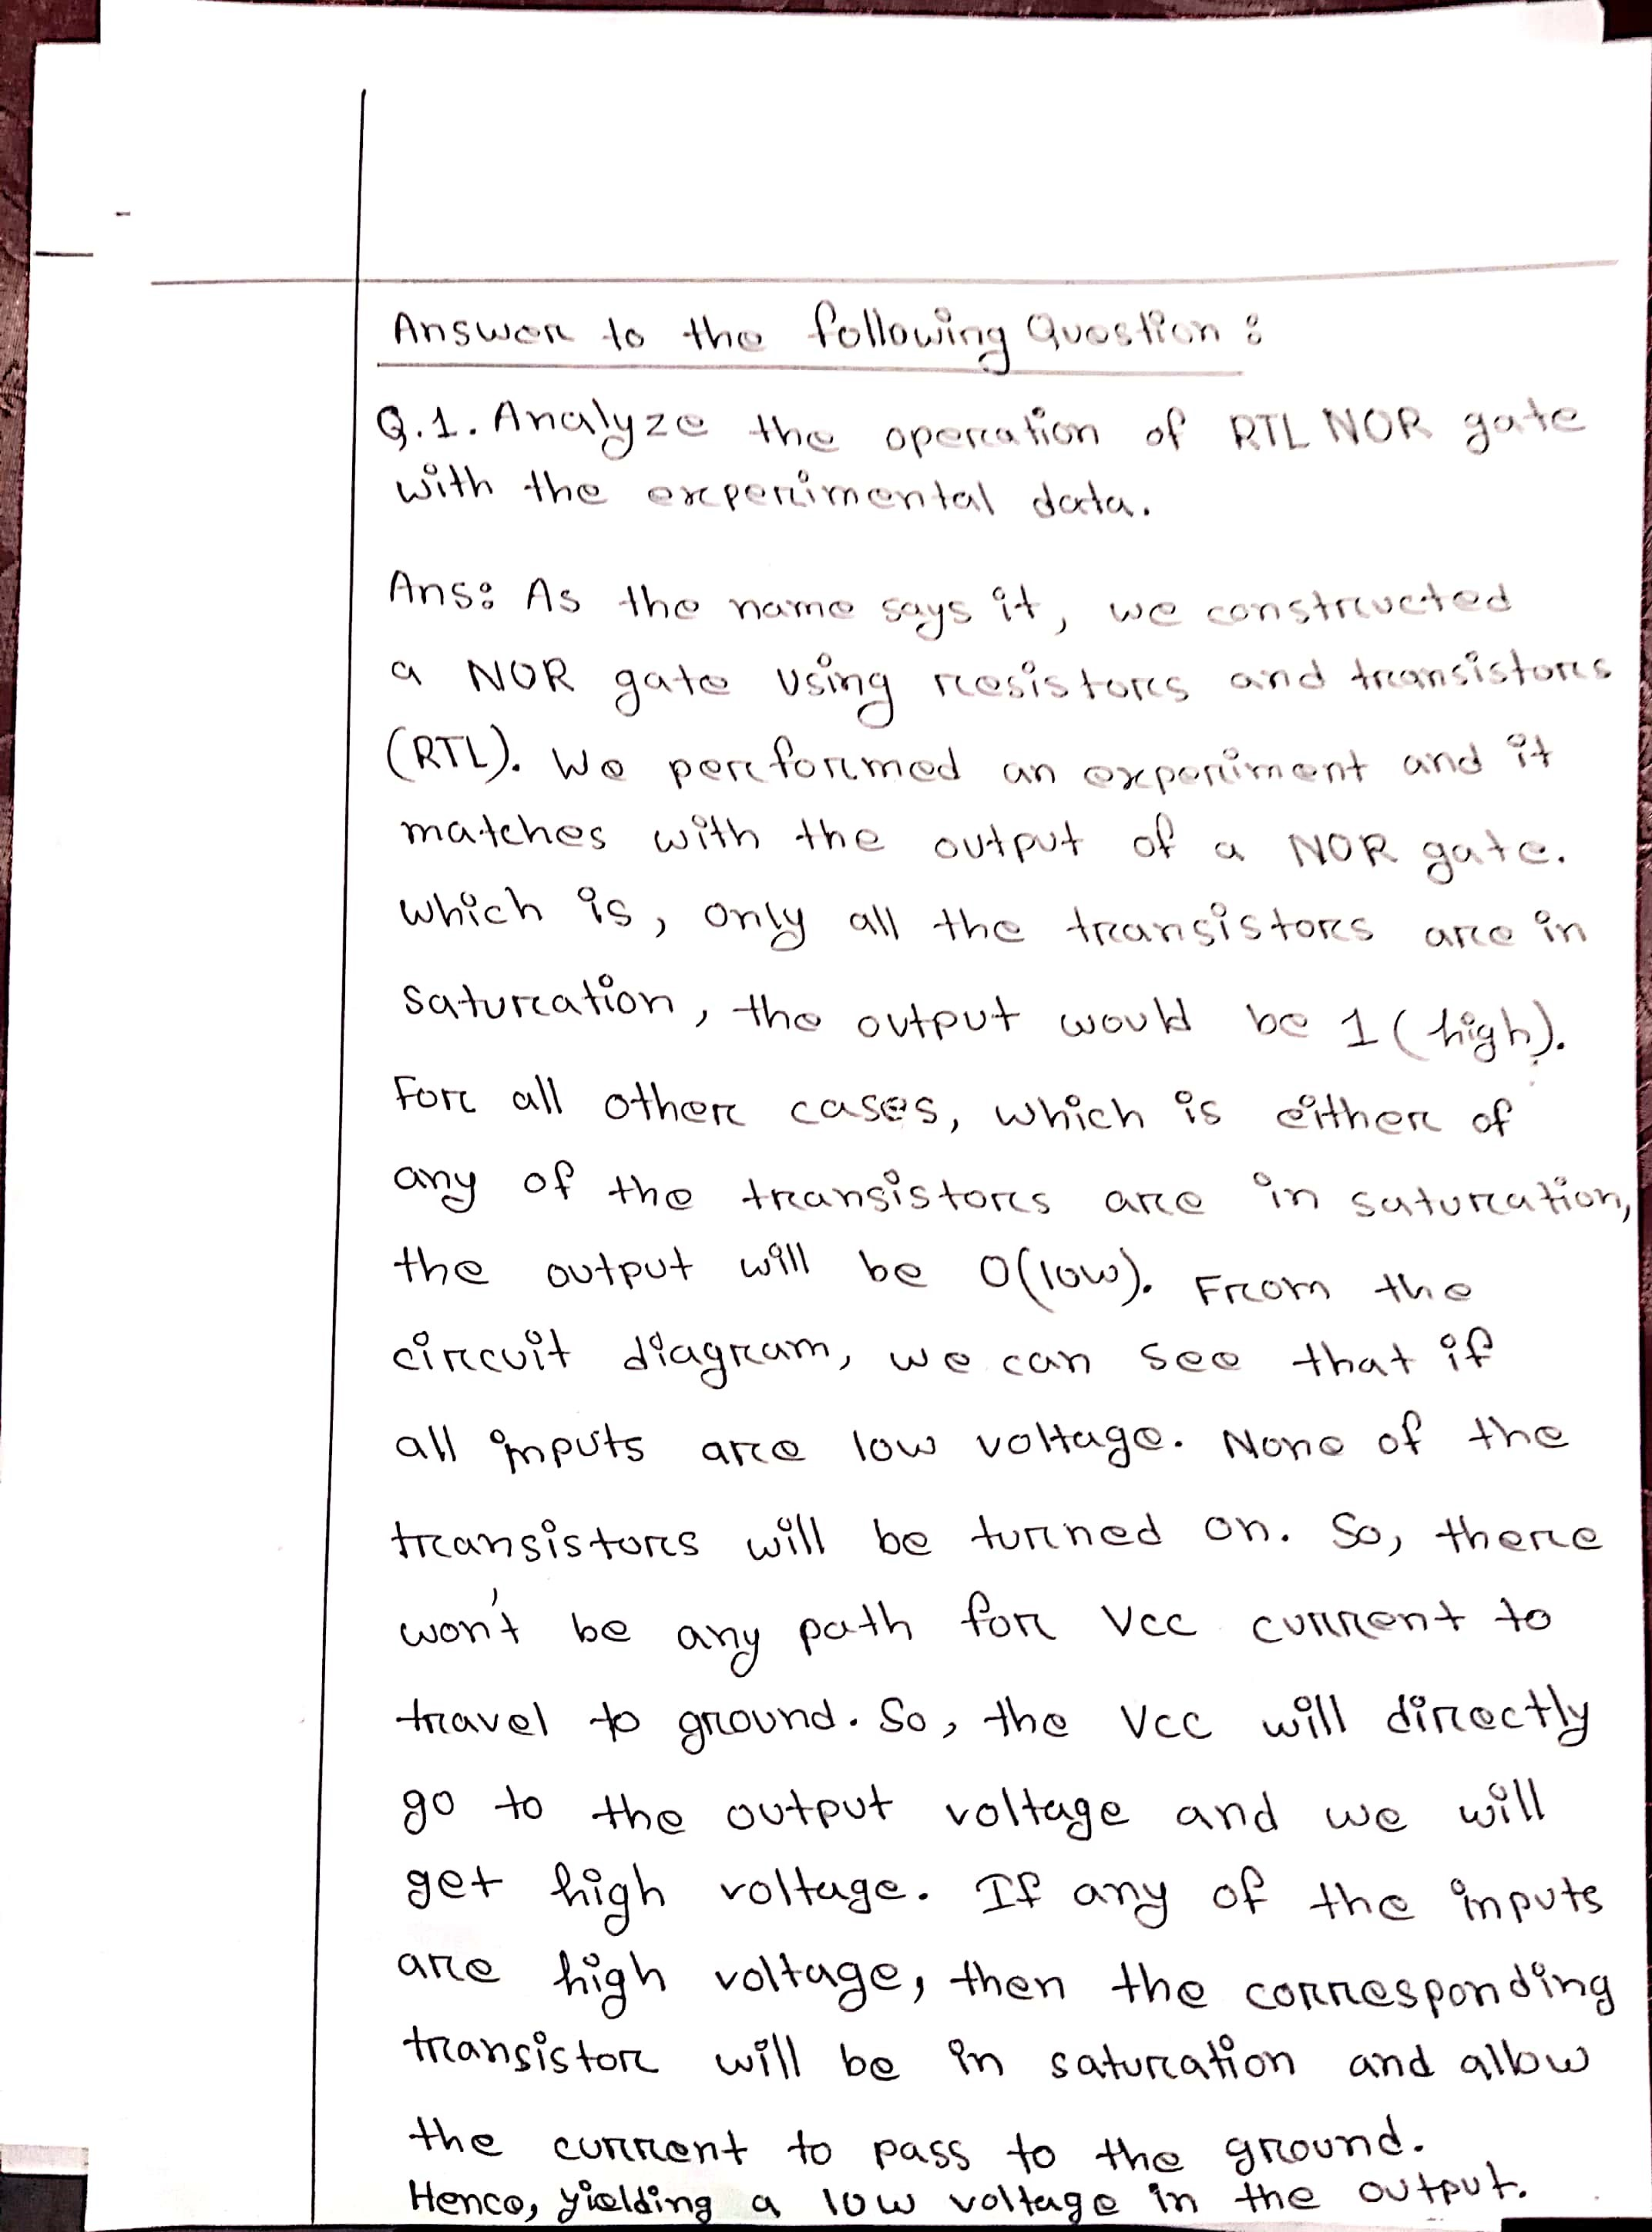 Answer to the following Question :
Q.1. Analyze the operation of RTL NOR gate
with the experimental data.
Ans: As the name says it, we constructed
a NOR gate using resistors and transistors
(RTL). We performed an experiment and it
matches with the output of a NOR gate.
which is, only all the transistors are in
saturation, the output would be 1 (high).
For all other cases, which is either of
any of the transistors are in saturation,
the output will be 0(low). From the
circuit diagram, we can see that if
all inputs are low voltage. None of the
transistors will be turned on. So, there
won't be any path for Vcc current to
travel to ground. So, the Vcc will directly
go to the output voltage and we will
get high voltage. If any of the inputs
are high voltage, then the corresponding
transistor will be in saturation and allow
the current to pass to the ground.
Hence, yielding a low voltage in the output.